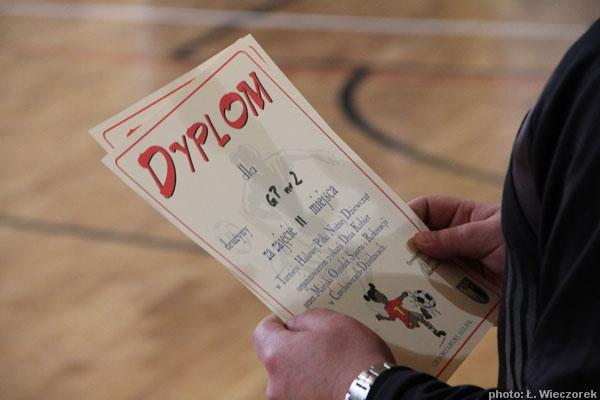 DYPLOM
dla
GP nr 2
drużyny
za zajęcie II miejsca
w Turnieju Halowej Piłki Nożnej Dziewcząt
organizowanym z okazji Dnia Kobiet
przez Miejski Ośrodek Sportu i Rekreacji
w Czechowicach-Dziedzicach
photo: Ł. Wieczorek